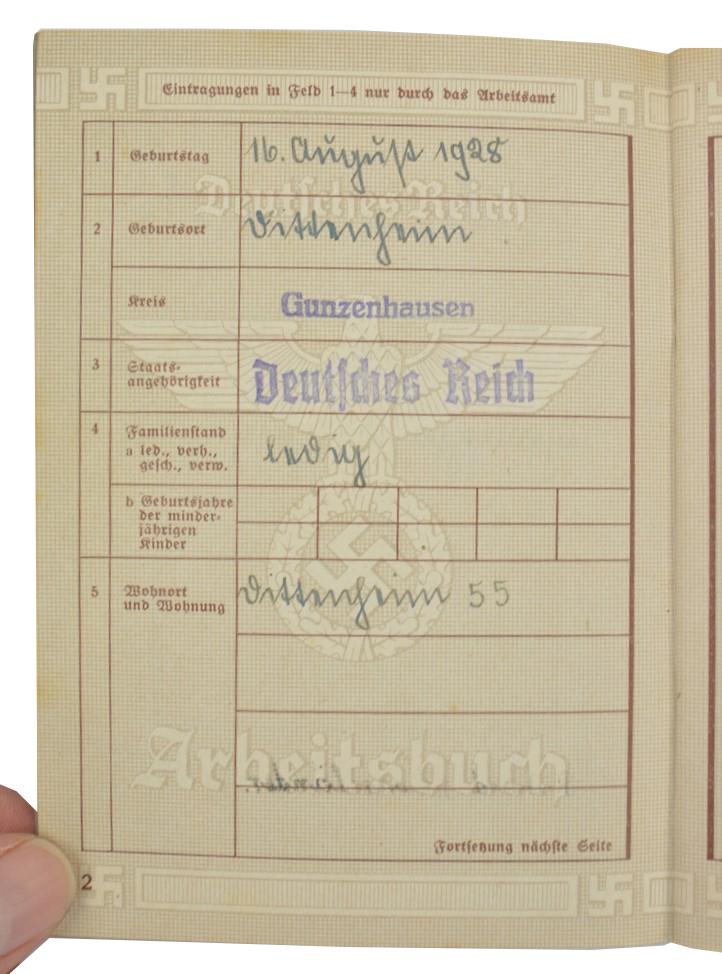 Eintragungen in Feld 1—4 nur durch das Arbeitsamt
1 Geburtstag 16. August 1928
Deutsches Reich
2 Geburtsort Dittenheim
Kreis Gunzenhausen
3 Staats-
angehörigkeit Deutsches Reich
4 Familienstand
a led., verh.,
gesch., verw. ledig
b Geburtsjahre
der minder-
jährigen
Kinder
5 Wohnort
und Wohnung Dittenheim 55
Arbeitsbuch
Fortsetzung nächste Seite
2